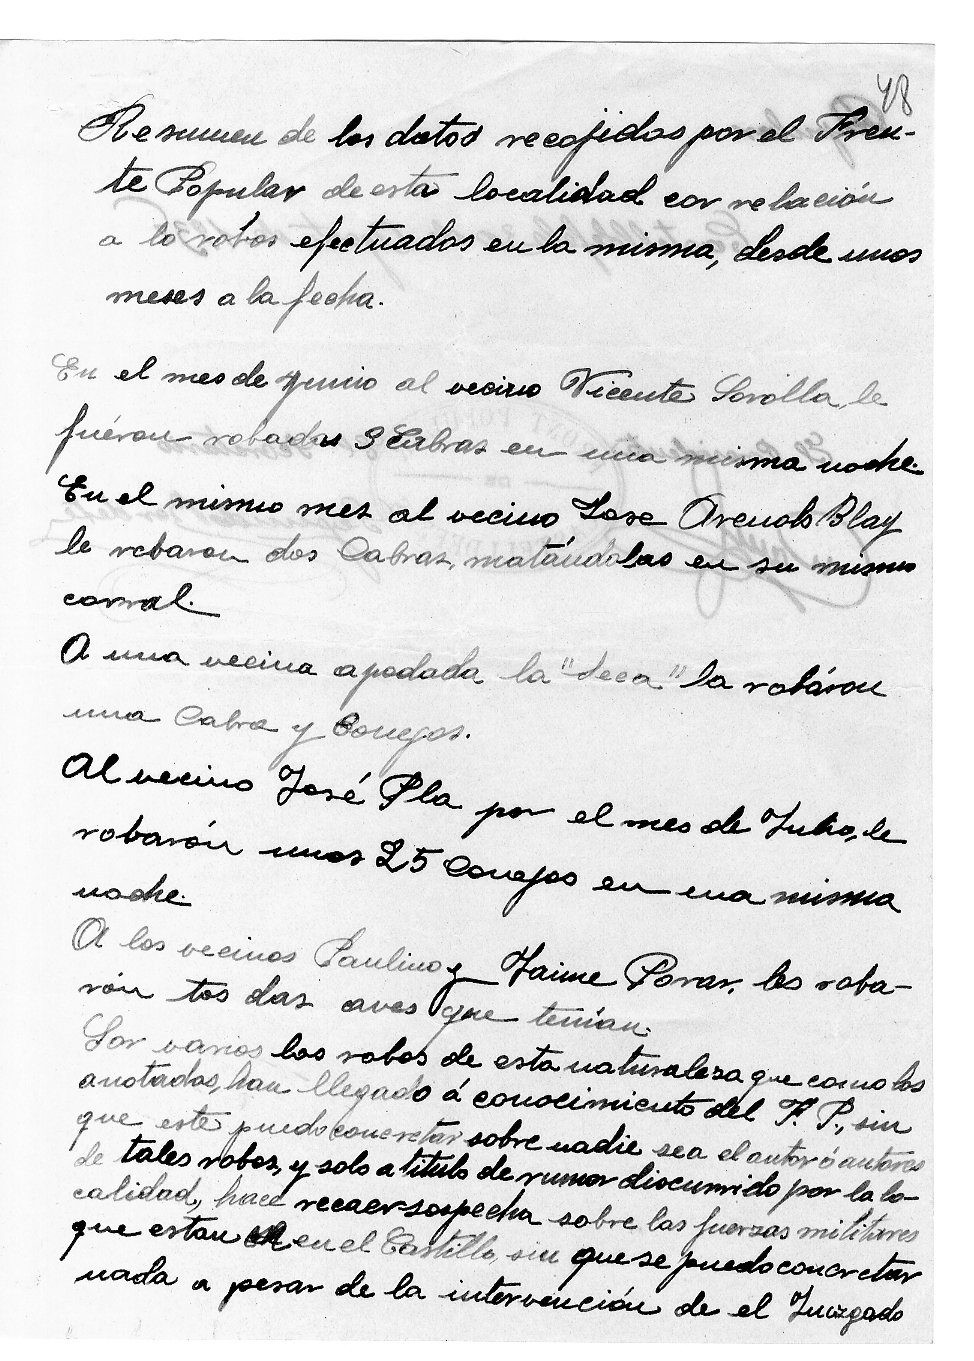 48
Resumen de los datos recojidos por el Fren-
te Popular de esta localidad con relación
a lo robos efectuados en la misma, desde unos
meses a la fecha.
En el mes de Junio al vecino Vicente Sorolla, le
fuéron robadas 3 Cabras en una misma noche.
En el mismo mes al vecino Jose Arenols Blay
le robaron dos Cabras, matándolas en su mismo
corral.
A una vecina apodada la "Seca" la robáron
una Cabra y Conejos.
Al vecino José Pla por el mes de Julio, le
robarón unos 25 Conejos en una misma
noche.
A los vecinos Paulino y Jaime Porar, les roba-
rón tos das aves que tenían.
Sor varios los robos de esta naturaleza que como los
anotados, han llegado á conocimiento del F. P., sin
que este puedo concretar sobre nadie sea el autor ó autores
de tales robos, y solo a titulo de rumor discurrido por la lo-
calidad, hace recaer sospecha sobre las fuerzas militares
que estan en el Castillo, sin que se puedo concretar
nada a pesar de la intervención de el Juzgado